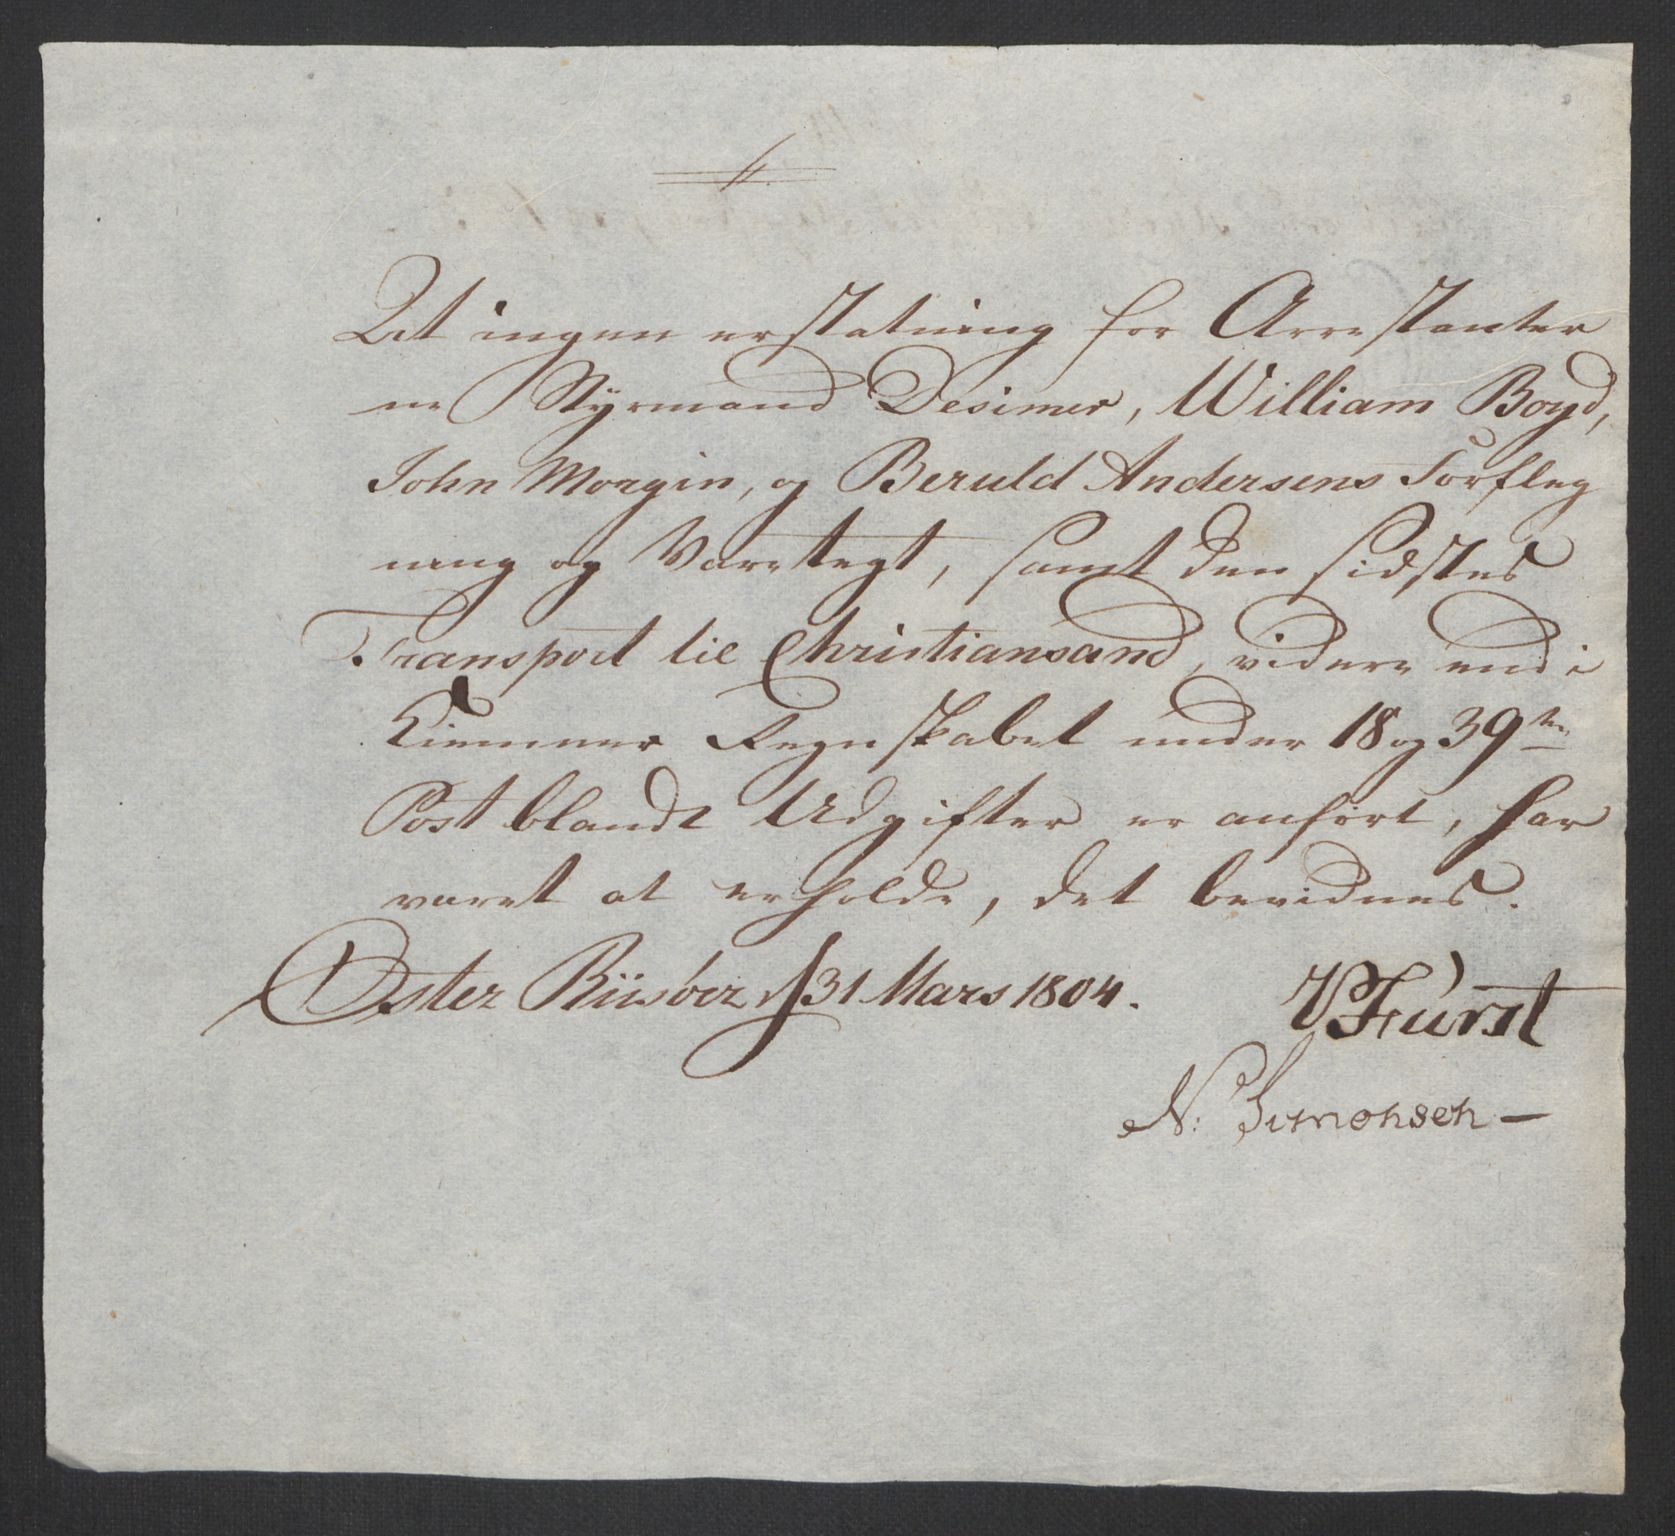 At ingen erstatning for Arrestanter
ne Styrmand Desimer, William Boyd,
John Morgin, og Beruld Andersens Forpleg
ning og Varetegt, samt den sidstes
Transport til Christiansand, videre end i
Kiemner Regnskabet under 18 og 39te
Post blandt Udgifter er anført, har
været at erholde, det bevidnes.
Øster Riisøer d 31 Mars 1804.
Fürst
N: Simonsen —